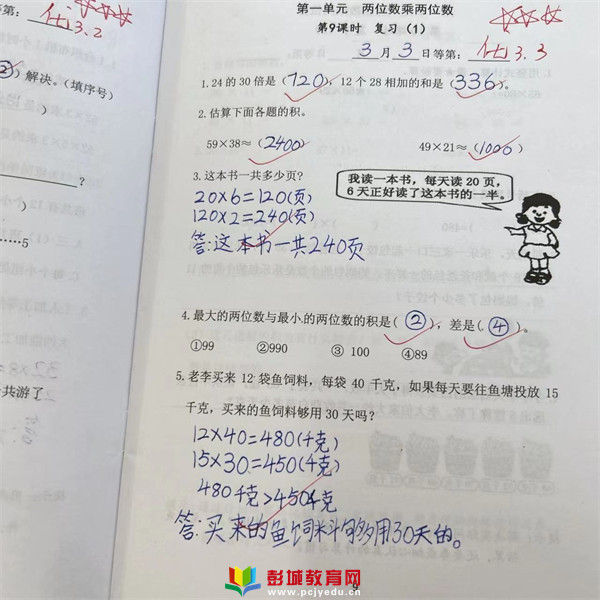 第一单元 两位数乘两位数
第9课时 复习（1）
3月3日等第：优3.3
等第：优3.2
②）解决。（填序号）
？
……5
共游了
1.24的30倍是（720），12个28相加的和是（336）。
2.估算下面各题的积。
59×38≈（2400） 49×21≈（1000）
3.这本书一共多少页？
我读一本书，每天读20页，
6天正好读了这本书的一半。
20×6=120(页)
120×2=240(页)
答:这本书一共240页
4.最大的两位数与最小的两位数的积是（②），差是（④）。
①99 ②990 ③ 100 ④89
5.老李买来12袋鱼饲料，每袋40千克，如果每天要往鱼塘投放15
千克，买来的鱼饲料够用30天吗？
12×40=480(千克)
15×30=450(千克)
480千克>450千克
答:买来的鱼饲料够用30天的。
9
彭城教育网
www.pcjyedu.cn